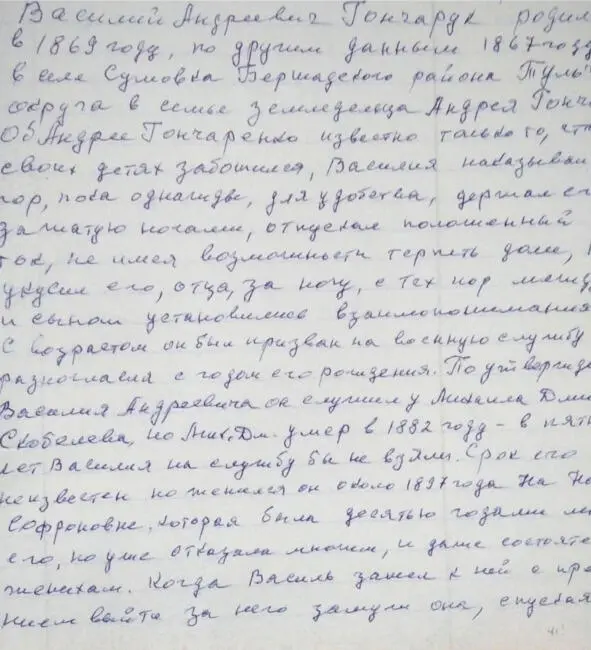 Василий Андреевич Гончарук родил
в 1869 году, по другим данным 1867 году
в селе Сумовка Бершадского района Туль
округа в семье земледельца Андрея Гонч
Об Андрее Гончаренко известно только то, чт
своих детях заботился, Василия наказывал
пор, пока однажды, для удобства, держал ег
зажатую ногами, отпускал положенный
ток, не имея возможности терпеть даже,
укусил его, отца, за ногу, с тех пор между
и сыном установилось взаимопонимание
С возрастом он был призван на военную службу
разногласия с годом его рождения. По утвержде
Василия Андреевича он служил у Михаила Дми
Скобелева, но Мих. Дм. умер в 1882 году - в пятн
лет Василия на службу бы не взяли. Срок его
неизвестен но женился он около 1897 года На На
Софроновне. которая была десятью годами мл
его, но уже отказала многим, и даже состояте
женихам. Когда Василь зашел к ней с пре
нием выйти за него замуж она, спуская